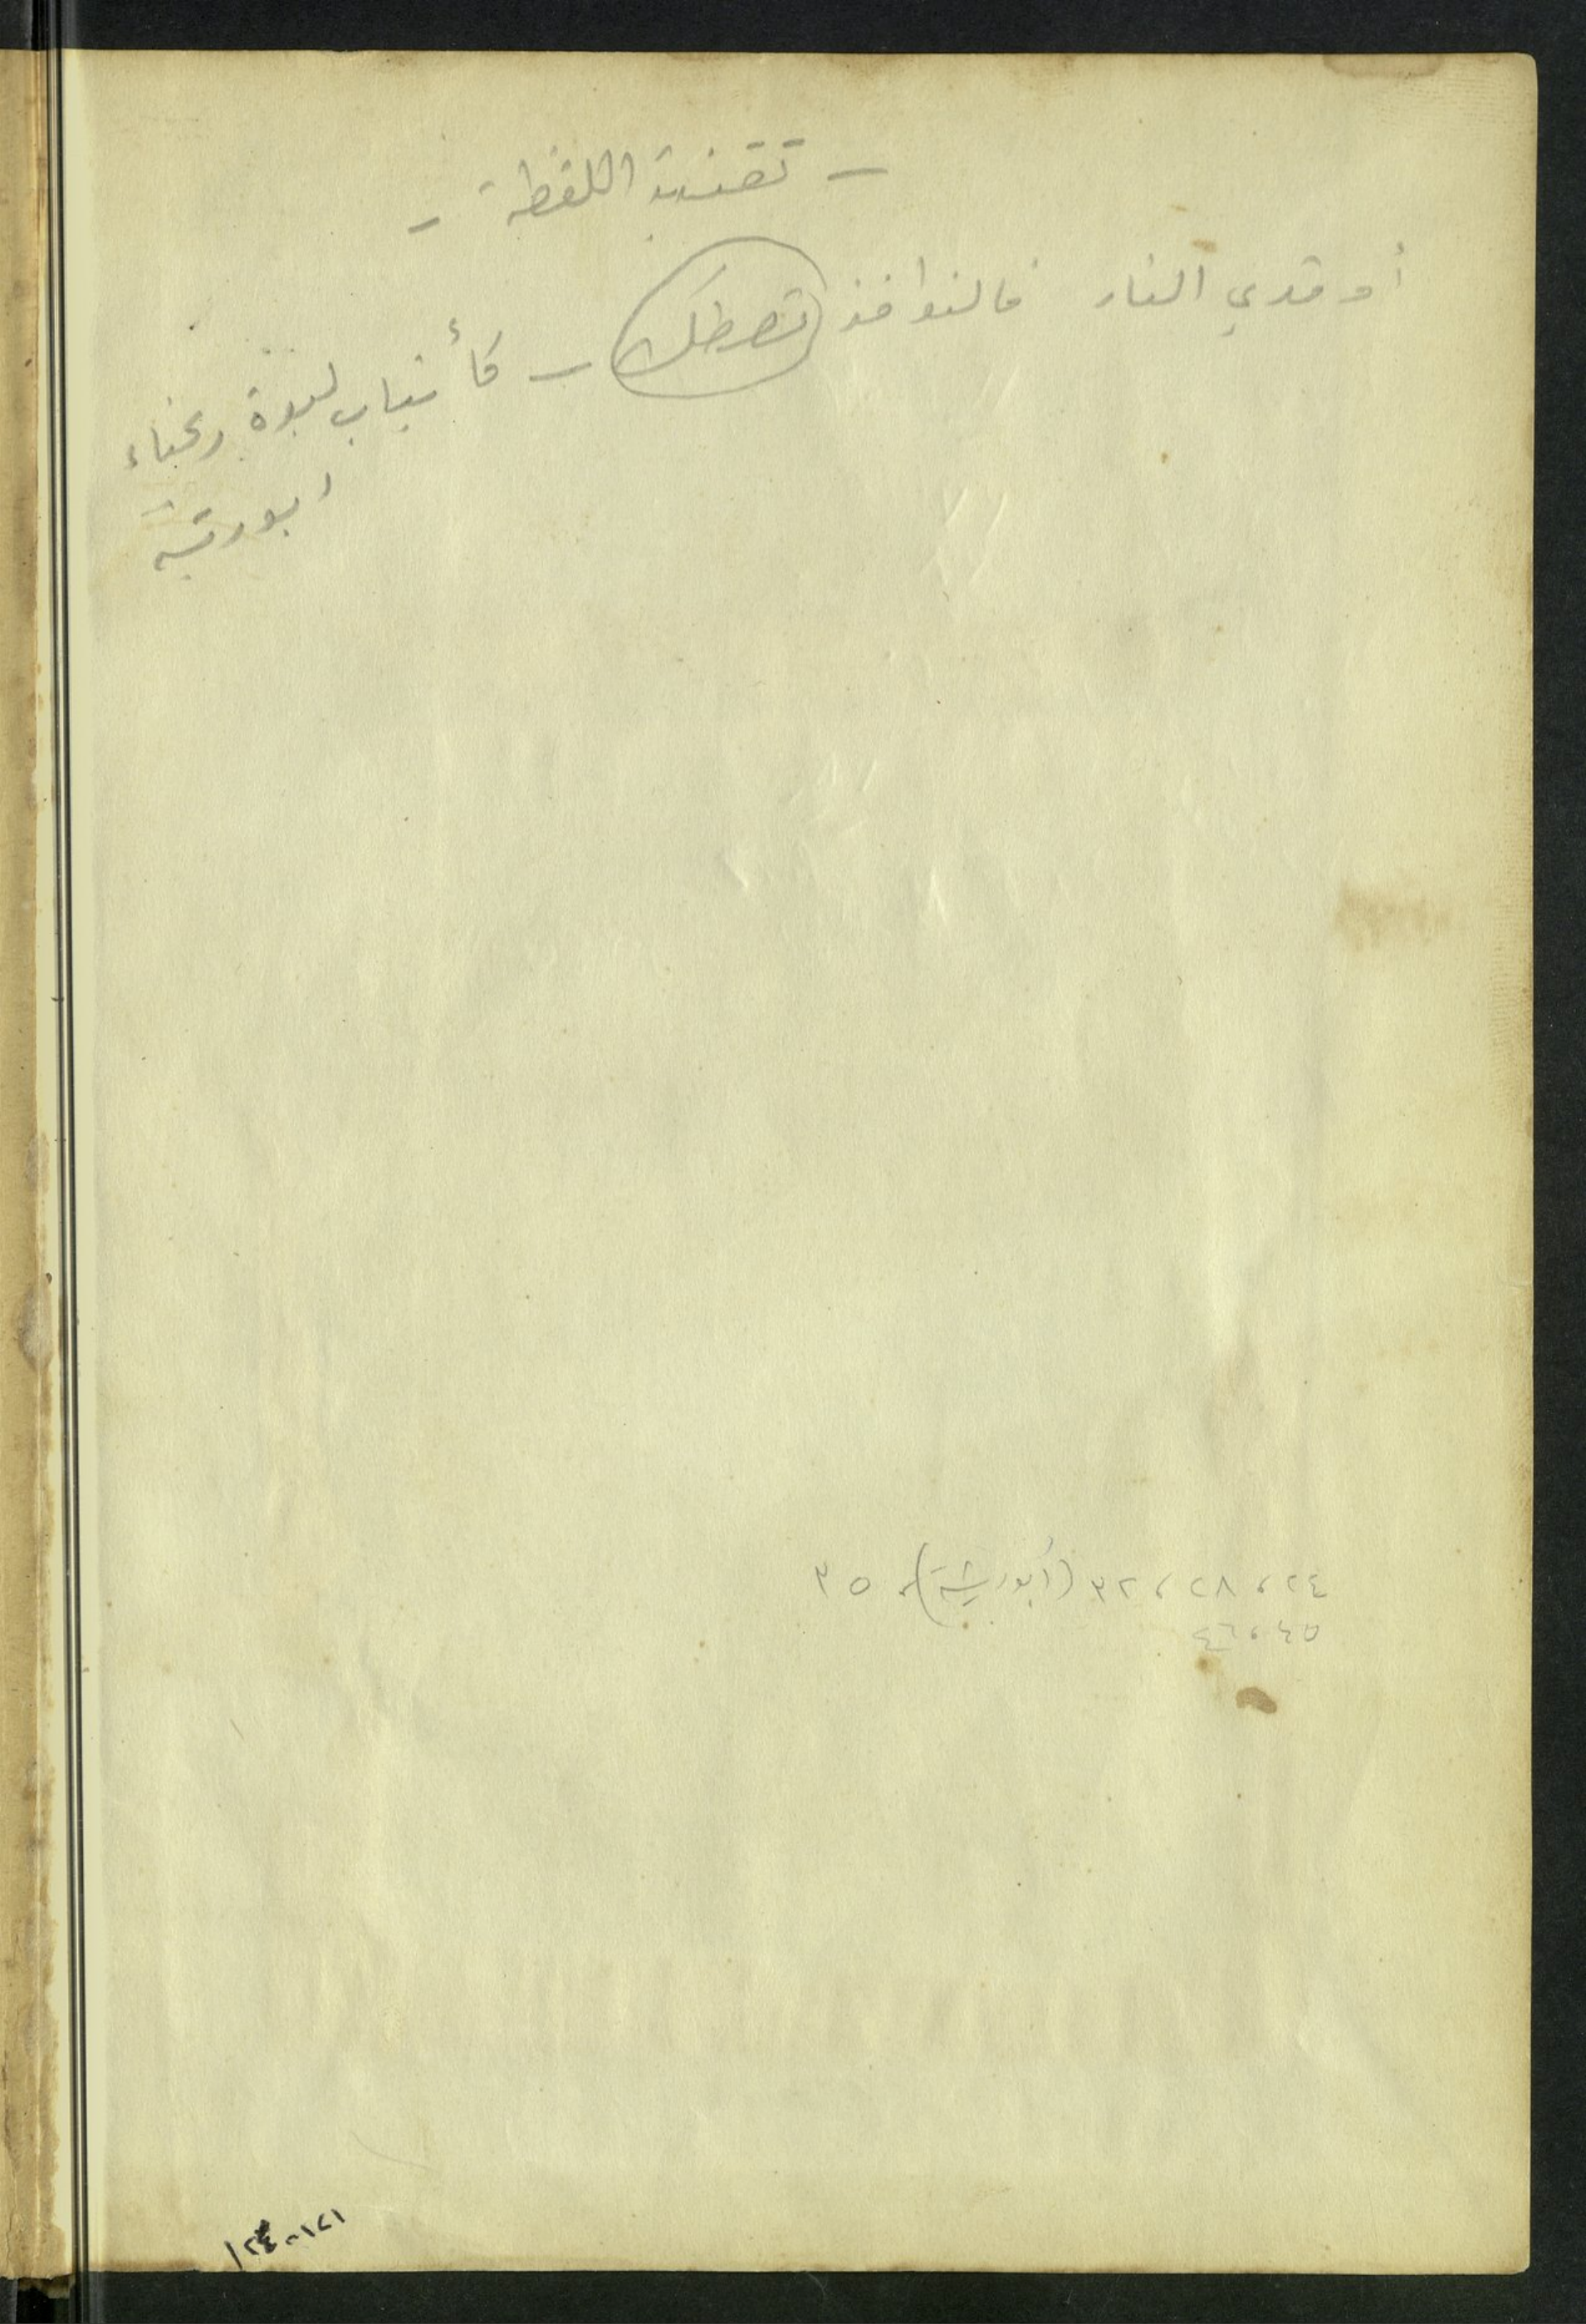 - تقنية اللفظة -
أوقدي النار فالنوافذ تصطك - كأنياب لبوة رعناء
ابو ريشة
٢٤، ٢٨، ٣٢ (أبو ريشة)، ٣٥
٤٥، ٤٦
١٢١-١٢٤